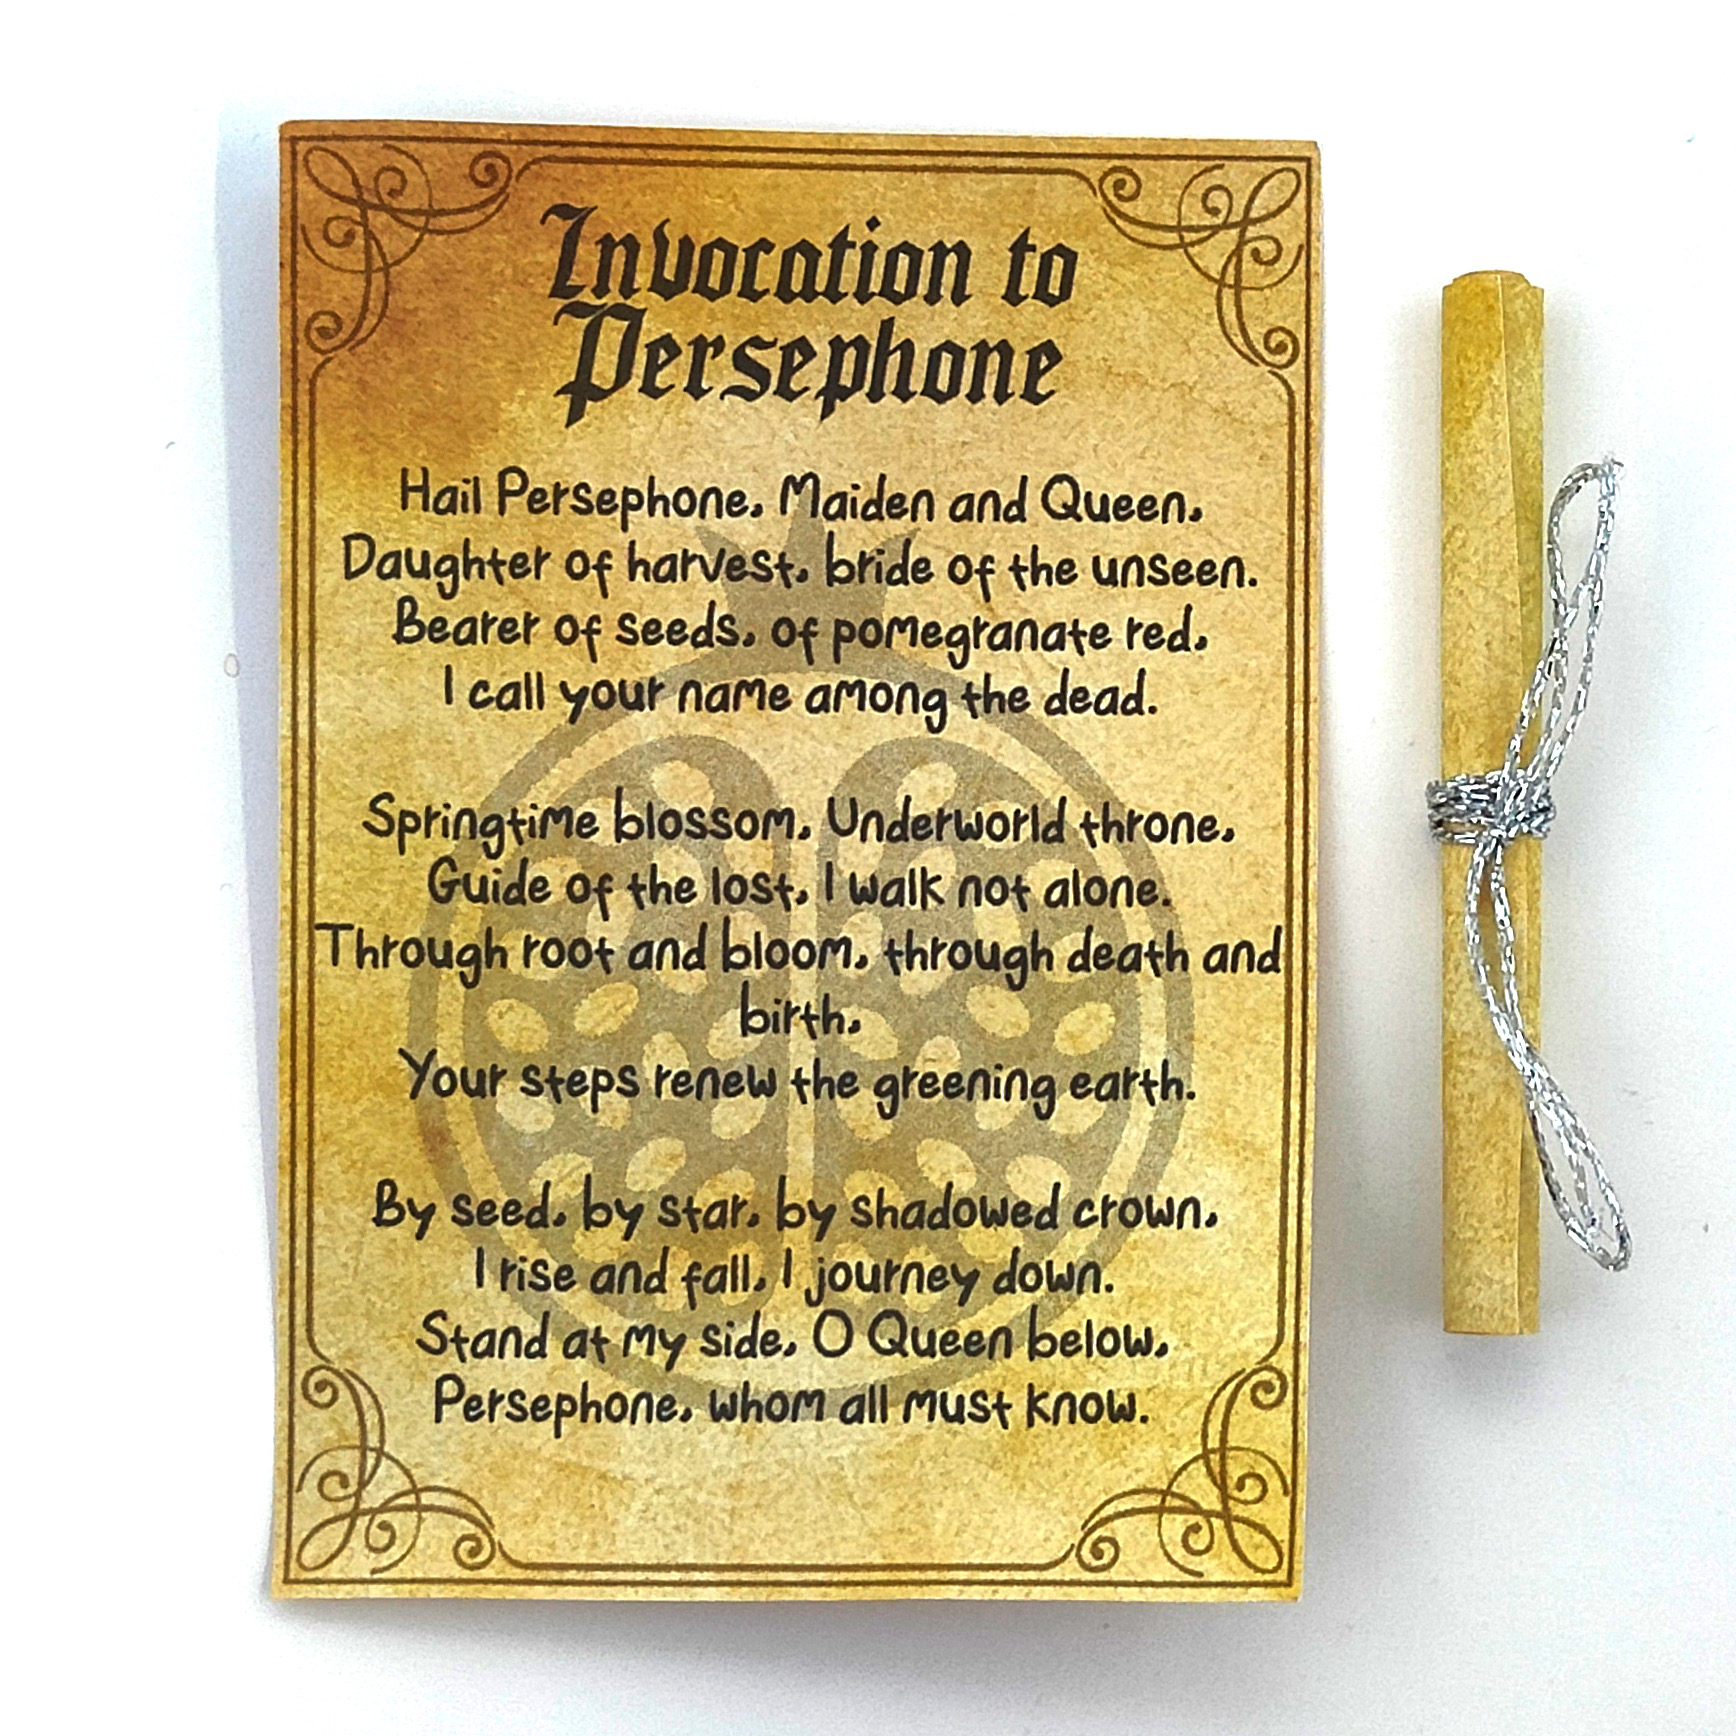 Invocation to
Persephone
Hail Persephone, Maiden and Queen,
Daughter of harvest, bride of the unseen.
Bearer of seeds, of pomegranate red,
I call your name among the dead.
Springtime blossom, Underworld throne,
Guide of the lost, I walk not alone.
Through root and bloom, through death and
birth,
Your steps renew the greening earth.
By seed, by star, by shadowed crown,
I rise and fall, I journey down.
Stand at my side, O Queen below,
Persephone, whom all must know.